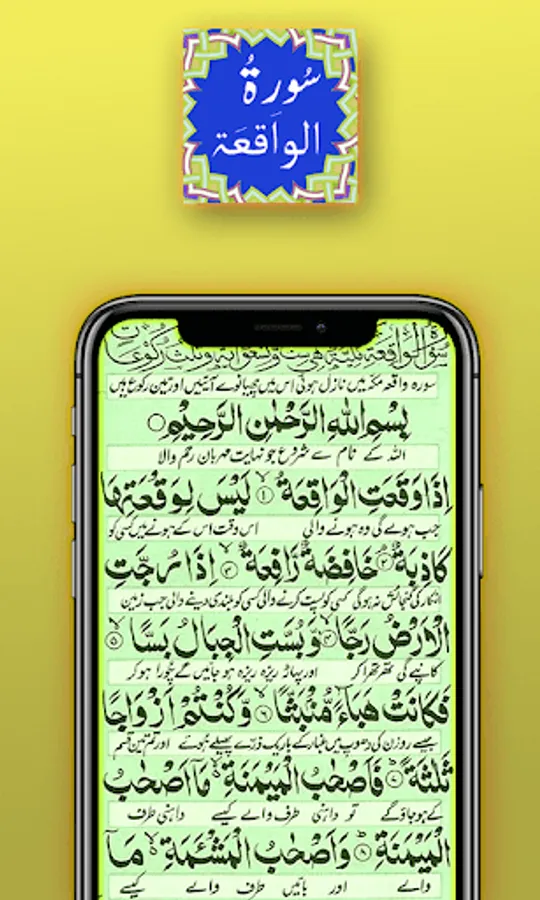 سُورۃُ
الواقعَة
سورہ واقعہ مکہ میں نازل ہوئی اس میں چھیانوے آیتیں اور تین رکوع ہیں
بِسْمِ اللّٰهِ الرَّحْمٰنِ الرَّحِيْمِ
اللہ کے نام سے شروع جو نہایت مہربان رحم والا
اِذَا وَقَعَتِ الْوَاقِعَةُ ۙ﴿۱﴾ لَيْسَ لِوَقْعَتِهَا
جب ہولے گی وہ ہونے والی اس وقت اس کے ہونے میں کسی کو
كَاذِبَةٌ ۘ﴿۲﴾ خَافِضَةٌ رَّافِعَةٌ ۙ﴿۳﴾ اِذَا رُجَّتِ
انکار کی گنجائش نہ ہوگی کسی کو پست کرنے والی کسی کو بلندی دینے والی جب زمین
الْاَرْضُ رَجًّا ۙ﴿۴﴾ وَّ بُسَّتِ الْجِبَالُ بَسًّا ۙ﴿۵﴾
کانپے گی تھرتھرا کر اور پہاڑ ریزہ ریزہ ہو جائیں گے چُورا ہو کر
فَكَانَتْ هَبَآءً مُّنْۢبَثًّا ۙ﴿۶﴾ وَّ كُنْتُمْ اَزْوَاجًا
جیسے روزن کی دھوپ میں غبار کے باریک ذرّے پھیلے ہوئے اور تم تین قسم
ثَلٰثَةً ؕ﴿۷﴾ فَاَصْحٰبُ الْمَيْمَنَةِ ۙ مَاۤ اَصْحٰبُ
کے ہو جاؤ گے تو داہنی طرف والے کیسے داہنی طرف
الْمَيْمَنَةِ ؕ﴿۸﴾ وَ اَصْحٰبُ الْمَشْـَٔمَةِ ۙ مَاۤ
والے اور بائیں طرف والے کیسے